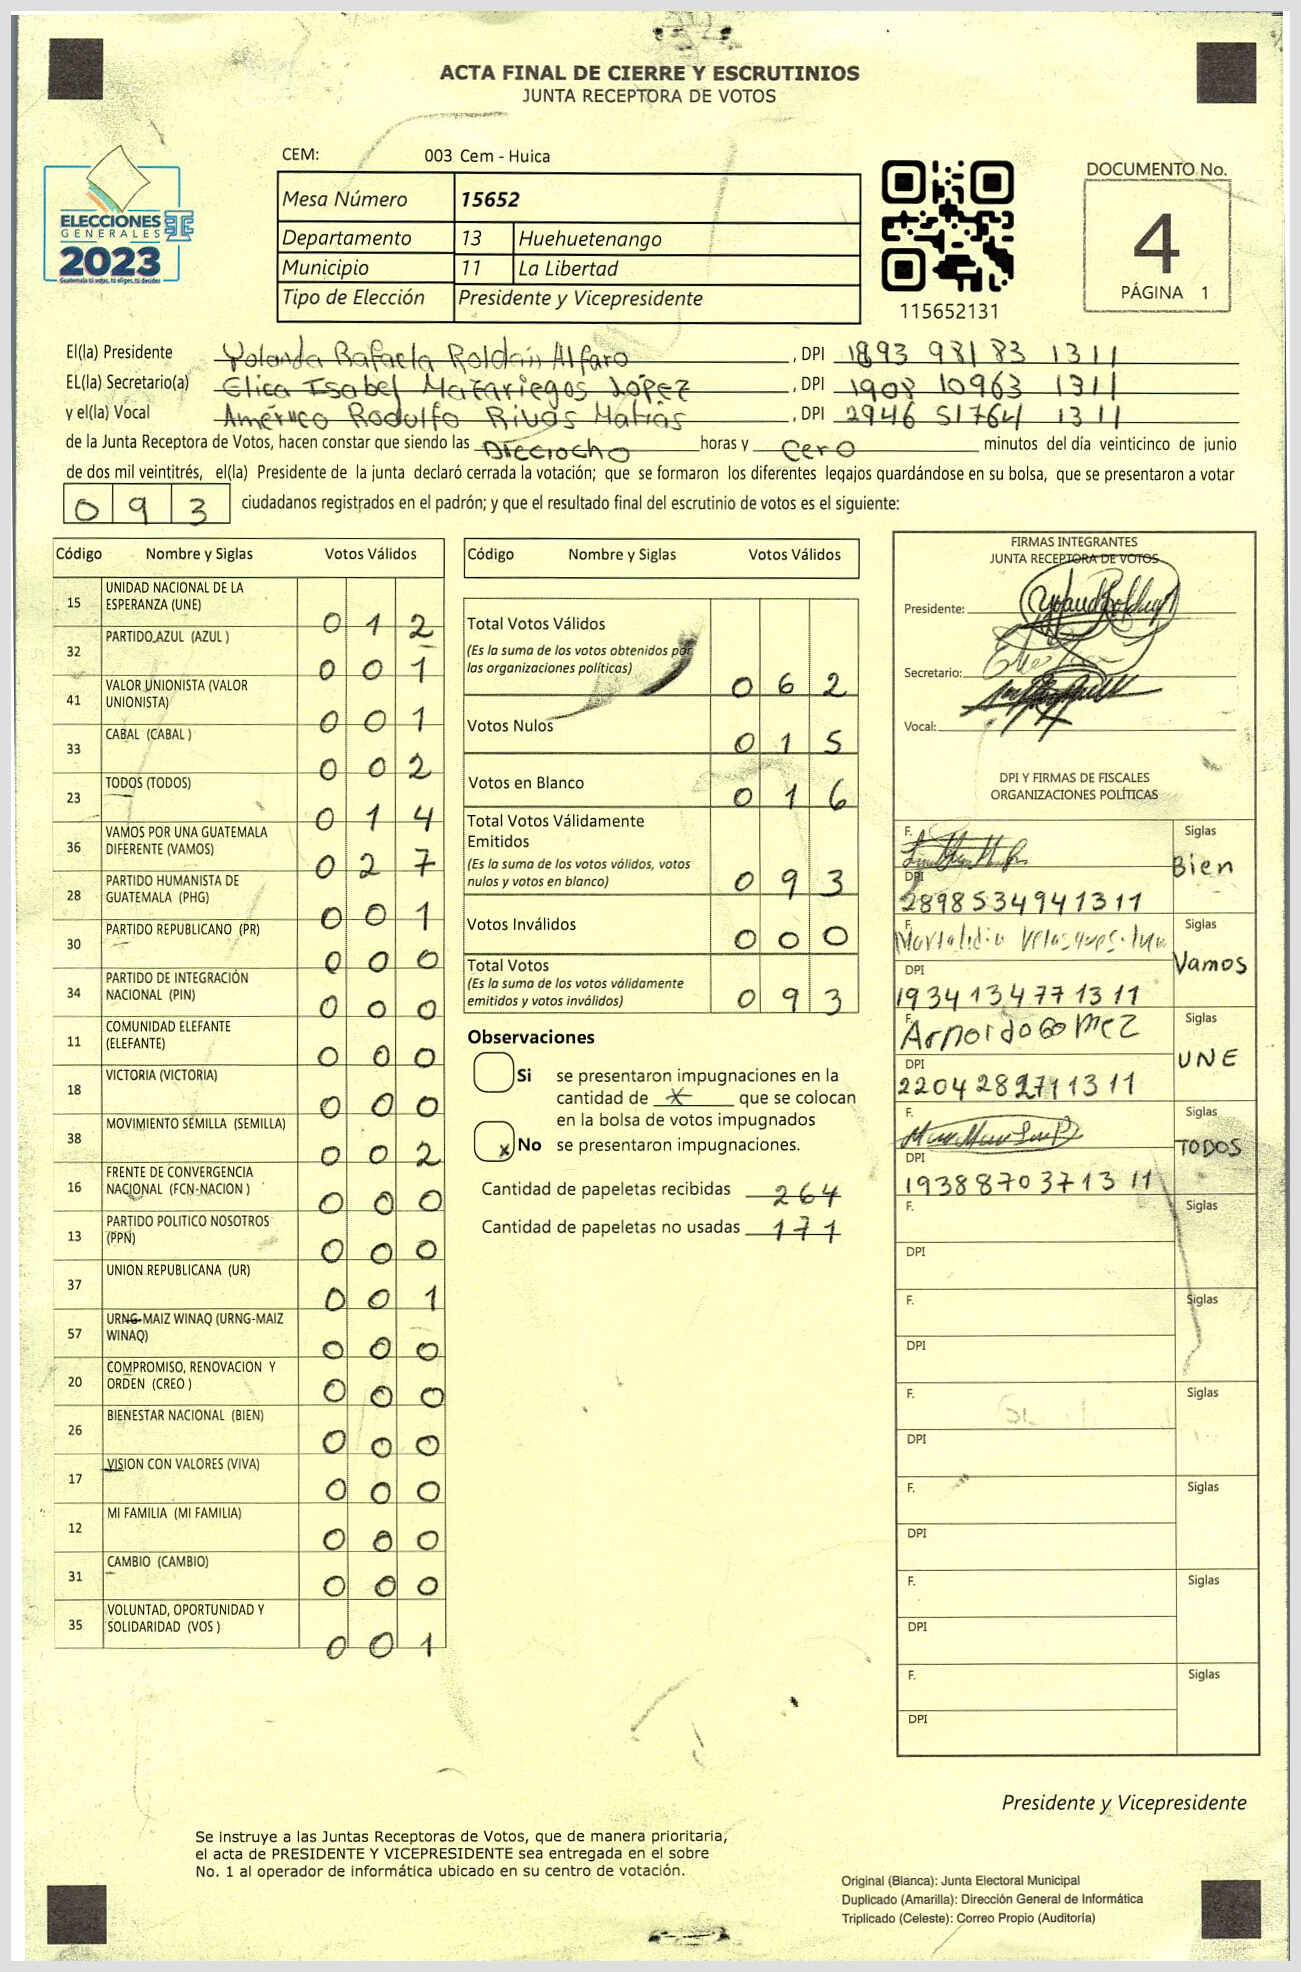 ACTA FINAL DE CIERRE Y ESCRUTINIOS
JUNTA RECEPTORA DE VOTOS
ELECCIONES
GENERALES
2023
Guatemala tú votas, tú eliges, tú decides
CEM: 003 Cem - Huica
Mesa Número 15652
Departamento 13 Huehuetenango
Municipio 11 La Libertad
Tipo de Elección Presidente y Vicepresidente
115652131
DOCUMENTO No.
4
PÁGINA 1
El(la) Presidente Yolanda Rafaela Roldán Alfaro , DPI 1893 98183 1311
EL(la) Secretario(a) Elica Isabel Mazariegos López , DPI 1908 10963 1311
y el(la) Vocal Américo Rodolfo Rivas Matías , DPI 2946 51764 1311
de la Junta Receptora de Votos, hacen constar que siendo las Dieciocho horas y cero minutos del día veinticinco de junio
de dos mil veintitrés, el(la) Presidente de la junta declaró cerrada la votación; que se formaron los diferentes legajos quardándose en su bolsa, que se presentaron a votar
093 ciudadanos registrados en el padrón; y que el resultado final del escrutinio de votos es el siguiente:
Código Nombre y Siglas Votos Válidos
15 UNIDAD NACIONAL DE LA ESPERANZA (UNE) 012
32 PARTIDO AZUL (AZUL ) 001
41 VALOR UNIONISTA (VALOR UNIONISTA) 001
33 CABAL (CABAL ) 002
23 TODOS (TODOS) 014
36 VAMOS POR UNA GUATEMALA DIFERENTE (VAMOS) 027
28 PARTIDO HUMANISTA DE GUATEMALA (PHG) 001
30 PARTIDO REPUBLICANO (PR) 000
34 PARTIDO DE INTEGRACIÓN NACIONAL (PIN) 000
11 COMUNIDAD ELEFANTE (ELEFANTE) 000
18 VICTORIA (VICTORIA) 000
38 MOVIMIENTO SEMILLA (SEMILLA) 002
16 FRENTE DE CONVERGENCIA NACIONAL (FCN-NACION ) 000
13 PARTIDO POLITICO NOSOTROS (PPN) 000
37 UNION REPUBLICANA (UR) 001
57 URNG-MAIZ WINAQ (URNG-MAIZ WINAQ) 000
20 COMPROMISO, RENOVACION Y ORDEN (CREO ) 000
26 BIENESTAR NACIONAL (BIEN) 000
17 VISION CON VALORES (VIVA) 000
12 MI FAMILIA (MI FAMILIA) 000
31 CAMBIO (CAMBIO) 000
35 VOLUNTAD, OPORTUNIDAD Y SOLIDARIDAD (VOS ) 001
Código Nombre y Siglas Votos Válidos
Total Votos Válidos
(Es la suma de los votos obtenidos por
las organizaciones políticas) 062
Votos Nulos 015
Votos en Blanco 016
Total Votos Válidamente
Emitidos
(Es la suma de los votos válidos, votos
nulos y votos en blanco) 093
Votos Inválidos 000
Total Votos
(Es la suma de los votos válidamente
emitidos y votos inválidos) 093
Observaciones
Si se presentaron impugnaciones en la
cantidad de x que se colocan
en la bolsa de votos impugnados
x No se presentaron impugnaciones.
Cantidad de papeletas recibidas 264
Cantidad de papeletas no usadas 171
FIRMAS INTEGRANTES
JUNTA RECEPTORA DE VOTOS
Presidente:
Secretario:
Vocal:
DPI Y FIRMAS DE FISCALES
ORGANIZACIONES POLÍTICAS
F. Siglas
Bien
DPI
2898534941311
F. Siglas
Vamos
DPI
1934134771311
F. Arnoldo Gomez Siglas
UNE
DPI
2204282711311
F. Siglas
TODOS
DPI
1938870371311
F. Siglas
DPI
F. Siglas
DPI
F. Siglas
DPI
F. Siglas
DPI
F. Siglas
DPI
F. Siglas
DPI
Presidente y Vicepresidente
Se instruye a las Juntas Receptoras de Votos, que de manera prioritaria,
el acta de PRESIDENTE Y VICEPRESIDENTE sea entregada en el sobre
No. 1 al operador de informática ubicado en su centro de votación.
Original (Blanca): Junta Electoral Municipal
Duplicado (Amarilla): Dirección General de Informática
Triplicado (Celeste): Correo Propio (Auditoría)